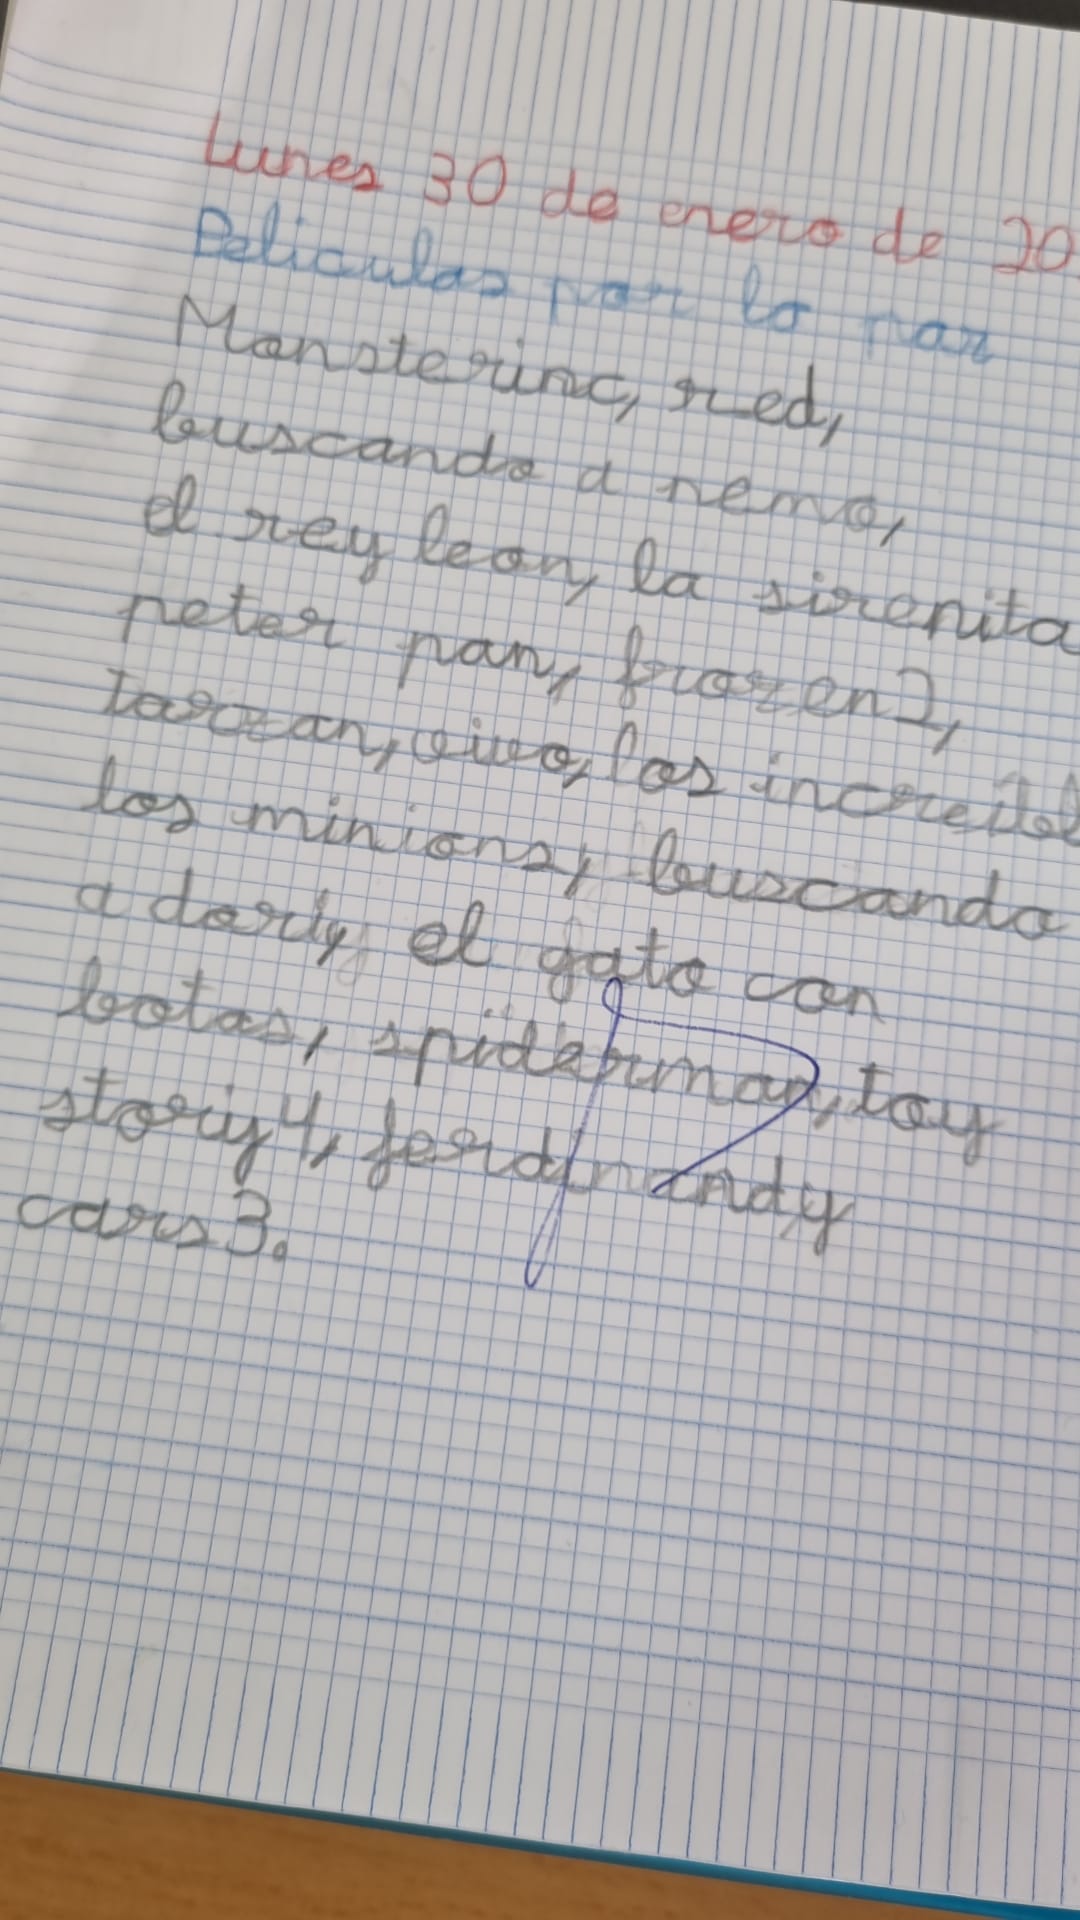 Lunes 30 de enero de 20
Peliculas por la paz
Monsterinc, red,
buscando a nemo,
el rey leon, la sirenita
peter pan, frozen2,
tarzan, vivo, los increibl
los minions, buscando
a doriy, el gato con
botas, spiderman, toy
storiy4, ferdinandy
cars3.